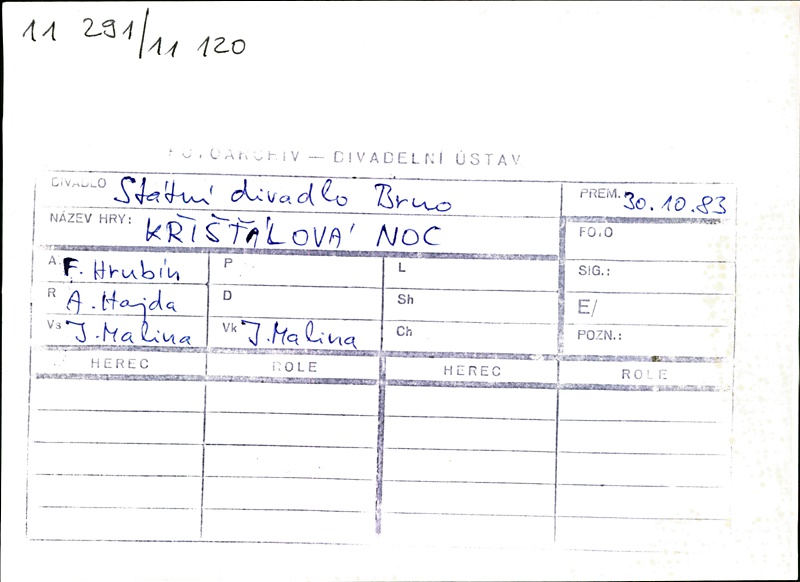 11 291/11 120
FOTOARCHIV — DIVADELNÍ ÚSTAV
DIVADLO Státní divadlo Brno PREM. 30.10.83
NÁZEV HRY: KŘIŠŤÁLOVÁ NOC FOTO
A. F. Hrubín P L SIG.:
R A. Hajda D Sh E/
Vs J. Malina Vk J. Malina Ch POZN.:
HEREC ROLE HEREC ROLE